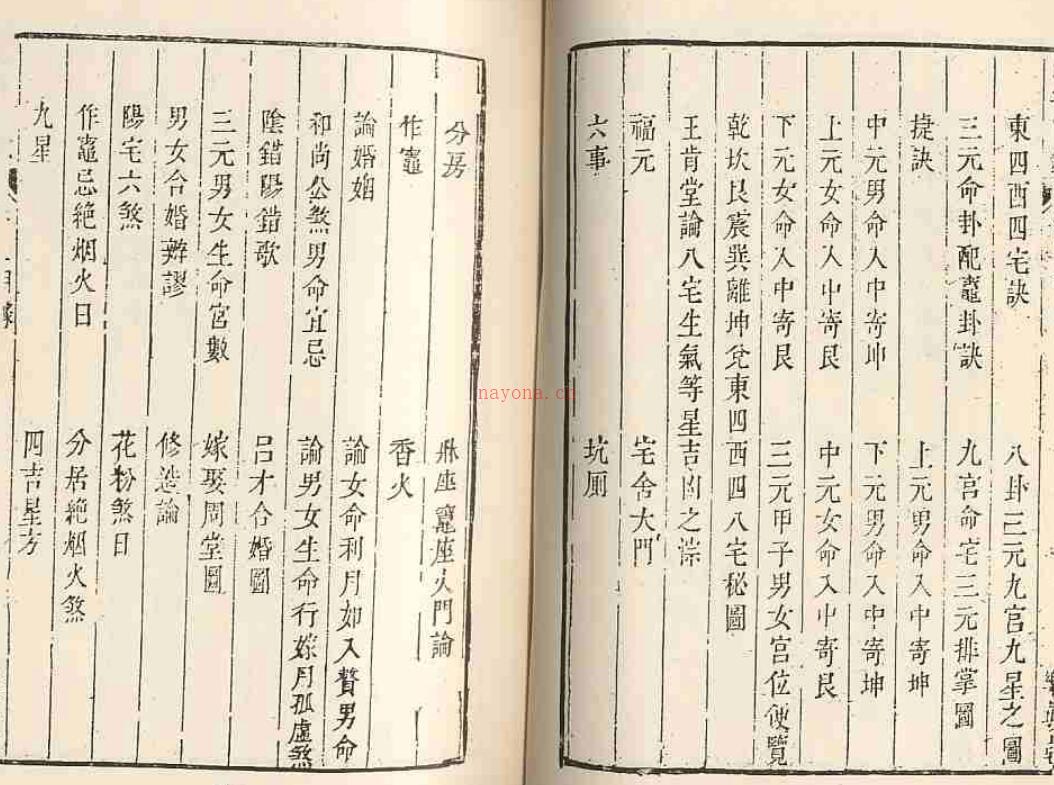 東四西四宅訣 八卦三元九宮九星之圖
三元命卦配竈卦訣 九宮命宅三元排掌圖
捷訣 上元男命入中寄坤
中元男命入中寄坤 下元男命入中寄坤
上元女命入中寄艮 中元女命入中寄艮
下元女命入中寄艮 三元甲子男女宮位便覽
乾坎艮震巽離坤兌東四西四八宅秘圖
王肯堂論八宅生氣等星吉凶之淙
福元 宅舍大門
六事 坑厠
分房 牀座竈座火門論
作竈 香火
論婚姻 論女命利月如入贅男命
和尚公煞男命宜忌 論男女生命行嫁月孤虛煞
陰錯陽錯歌 呂才合婚圖
三元男女生命宮數 嫁娶周堂圖
男女合婚辨謬 修造論
陽宅六煞 花粉煞日
作竈忌絶烟火日 分居絶烟火煞
九星 四吉星方
nayona.cn